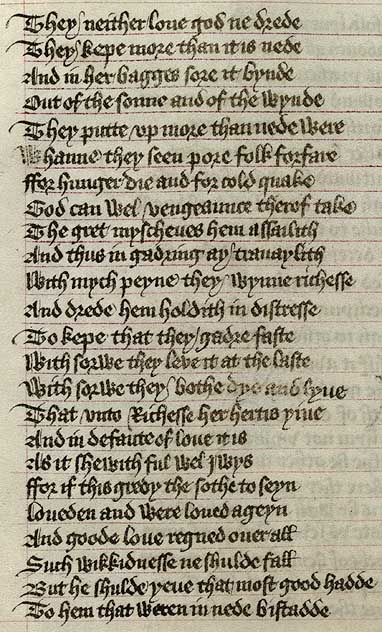 They neither loue god ne drede
They kepe more than it is nede
And in her bagges sore it bynde
Out of the sonne and of the wynde
They putte vp more than nede were
Whanne they seen pore folk forfare
ffor hunger die and for cold quake
God can wel vengeaunce therof take
The gret myscheues hem assailith
And thus in gadring ay trauaylith
With mych peyne they wynne richesse
And drede hem holdith in distresse
To kepe that they gadre faste
With sorwe they leve it at the laste
With sorwe they bothe dye and lyue
That vnto Richesse her hertis yiue
And in defaute of loue it is
As it shewith ful wel Jwys
ffor if this gredy the sothe to seyn
Loueden and were loued ageyn
And goode loue regned ouer all
Such wikkidnesse ne shulde fall
But he shulde yeue that most good hadde
To hem that weren in nede bistadde